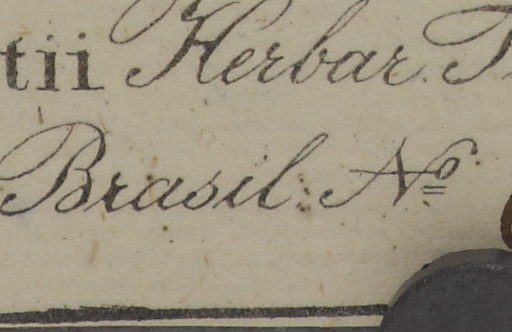 tii Herbar.
Brasil. Nº